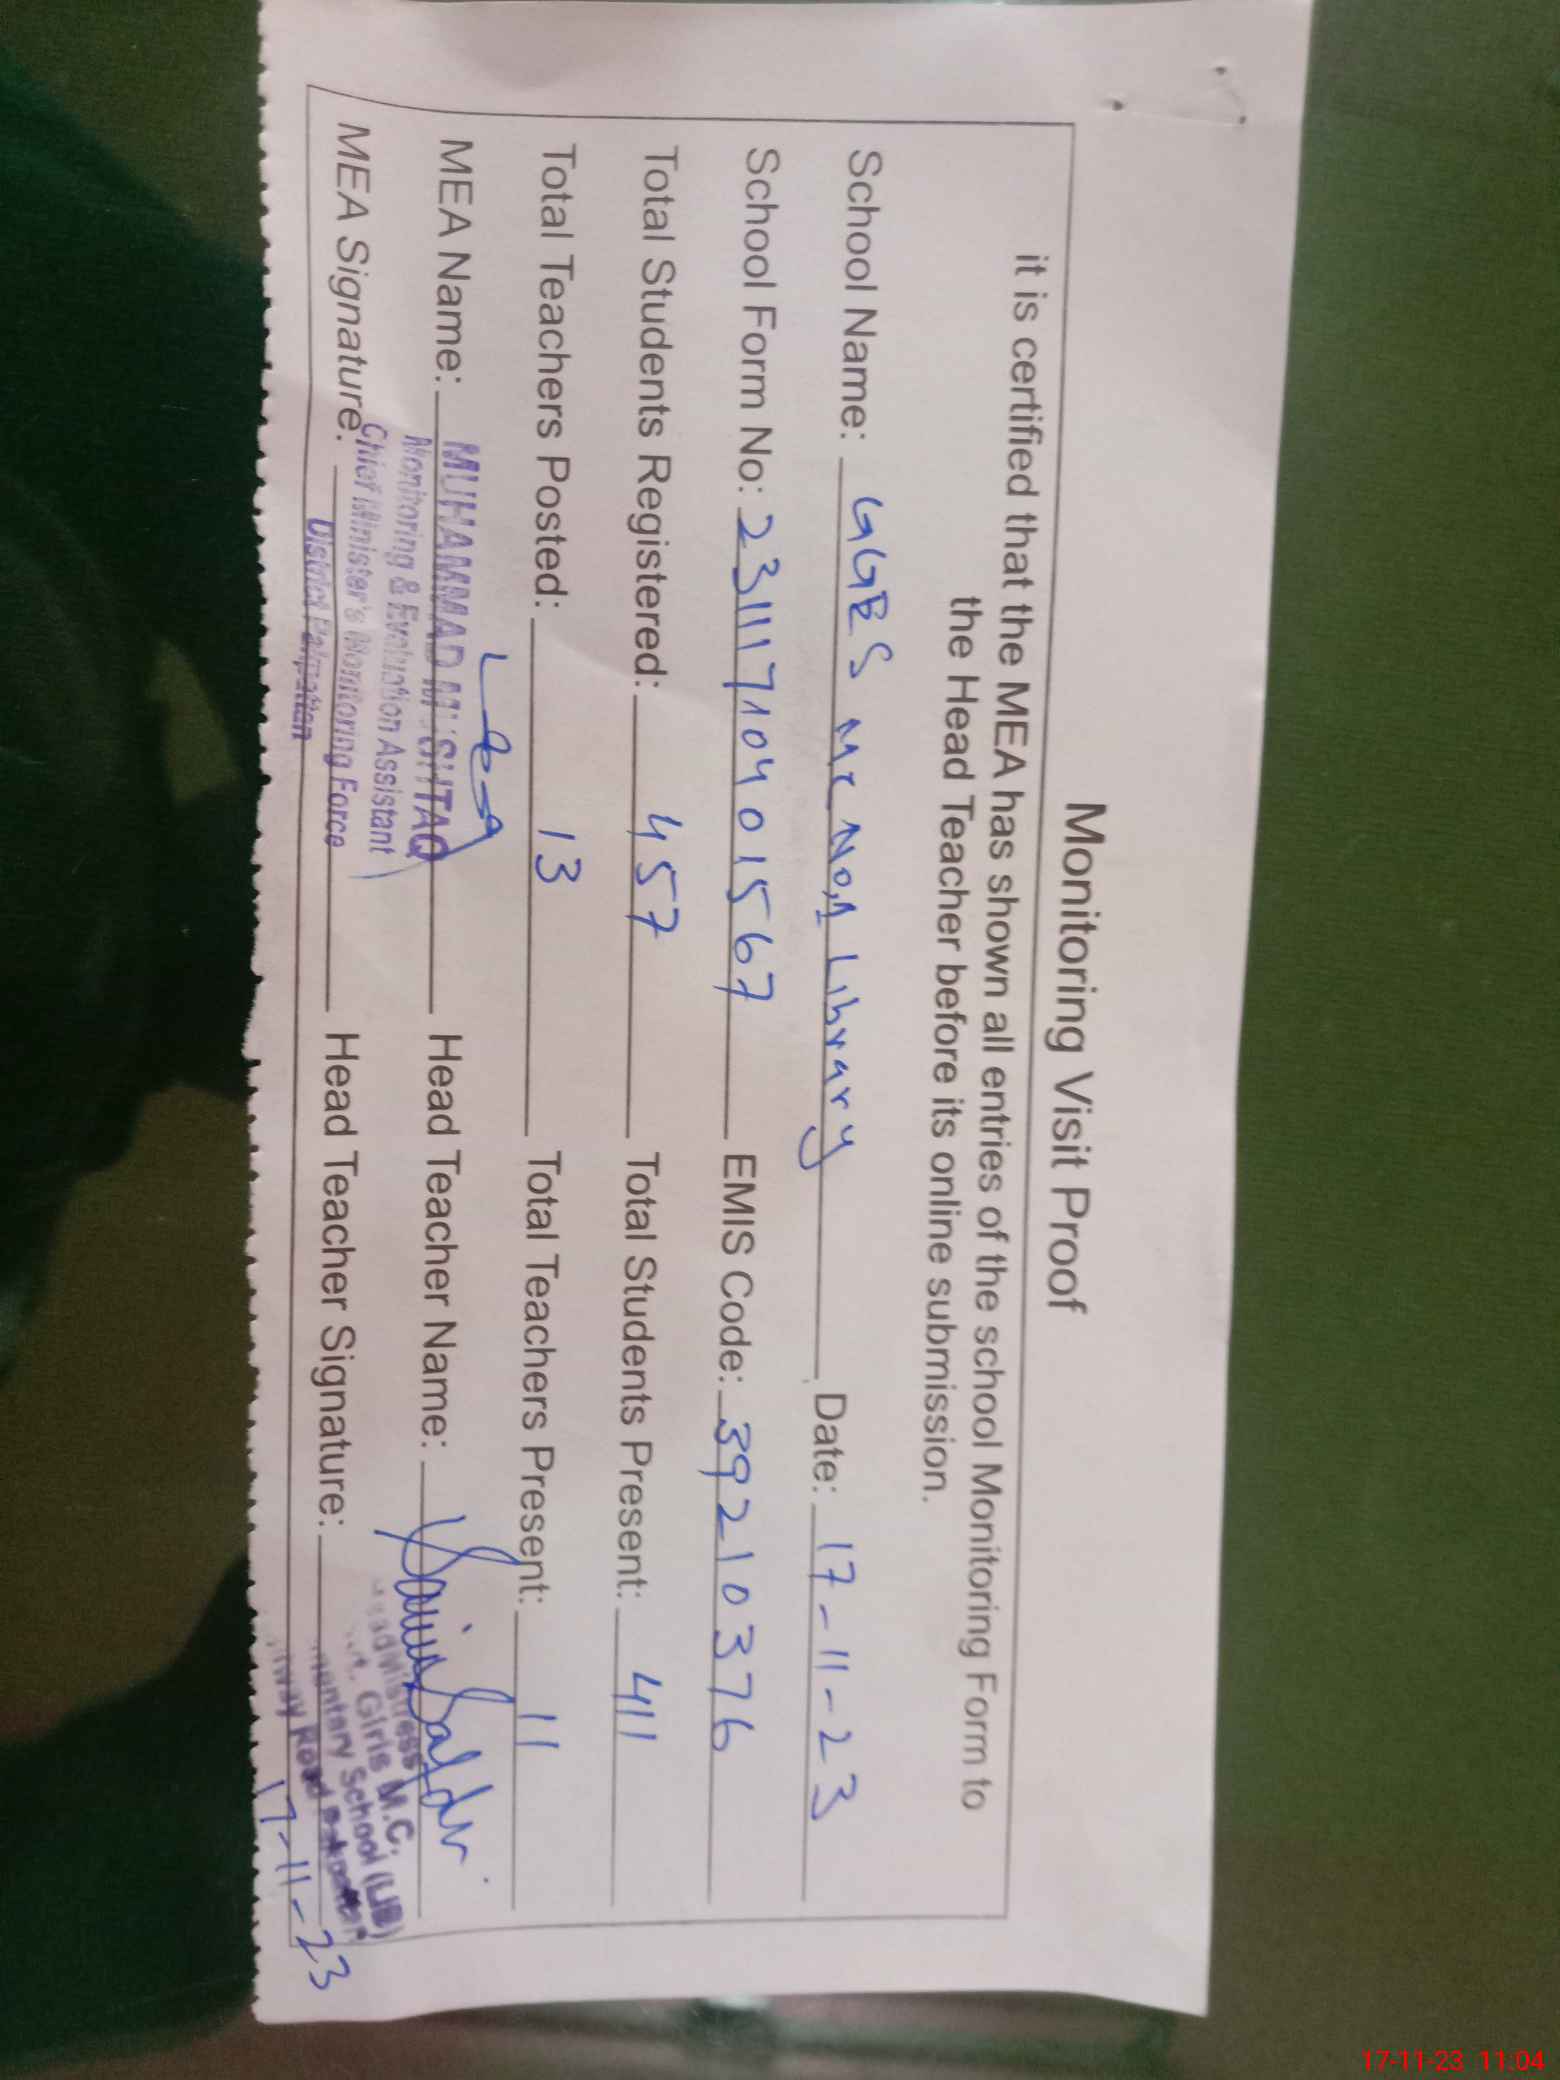 Monitoring Visit Proof
it is certified that the MEA has shown all entries of the school Monitoring Form to
the Head Teacher before its online submission.
School Name: GGES MC No,1 Library Date: 17-11-23
School Form No: 23111710401567 EMIS Code: 39210376
Total Students Registered: 457 Total Students Present: 411
Total Teachers Posted: 13 Total Teachers Present: 11
MEA Name: MUHAMMAD MUSHTAQ Head Teacher Name:
Monitoring & Evaluation Assistant
MEA Signature: Head Teacher Signature:
Chief Minister's Monitoring Force
District Pakpattan
Headmistress
Girls M.C.
School (LIB)
Road
17-11-23
17-11-23 11:04